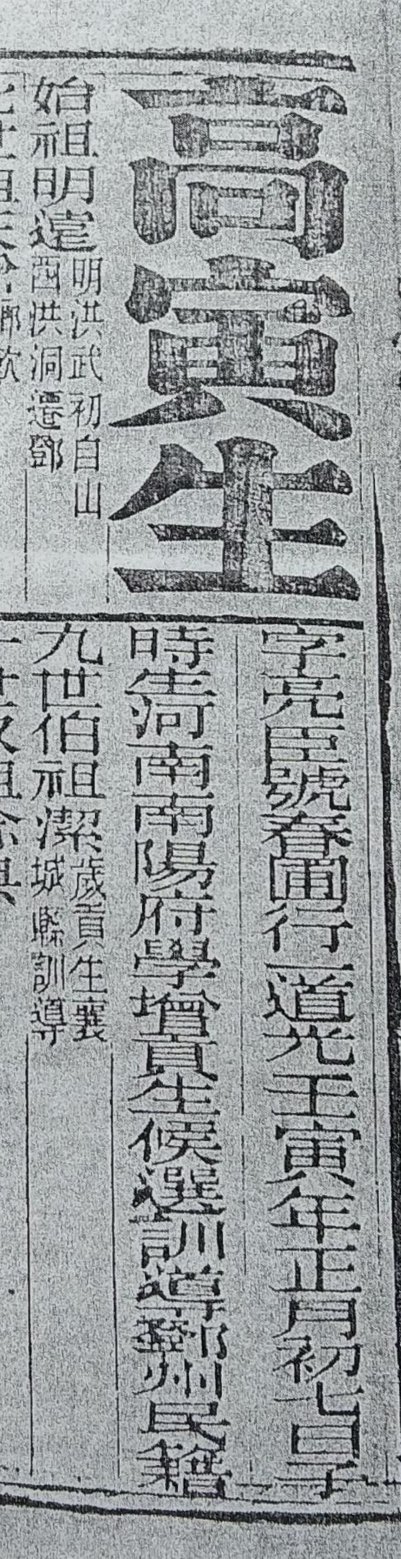 高寅生
字亮臣號春圃行一道光壬寅年正月初七日子
時生河南南陽府學增貢生候選訓導鄧州民籍
始祖明遠
明洪武初自山
西洪洞遷鄧
九世伯祖潔
歲貢生襄
城縣訓導